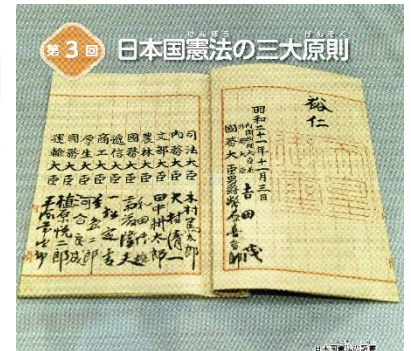 けんぽう げんそく
第3回 日本国憲法の三大原則
裕仁
昭和二十一年十一月三日
内閣総理大臣兼
外務大臣 吉田茂
國務大臣 男爵 幣原喜重郎
司法大臣 木村篤太郎
内務大臣 大村清一
文部大臣 田中耕太郎
農林大臣 和田博雄
國務大臣 斎藤隆夫
遞信大臣 一松定吉
商工大臣 星島二郎
厚生大臣 河合良成
國務大臣 植原悦二郎
運輸大臣 平塚常次郎
日本国憲法の